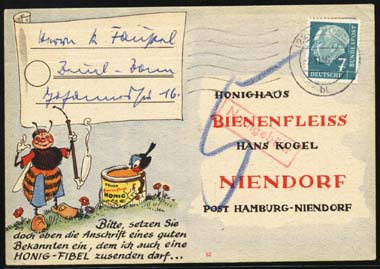 Herrn K. Faußel
Beuel-Bonn
Johannesstr 16.
7
DEUTSCHE
BUNDESPOST
bl
HONIGHAUS
BIENENFLEISS
HANS KOGEL
NIENDORF
POST HAMBURG-NIENDORF
HONIG
Bitte, setzen Sie
doch oben die Anschrift eines guten
Bekannten ein, dem ich auch eine
HONIG-FIBEL zusenden darf...